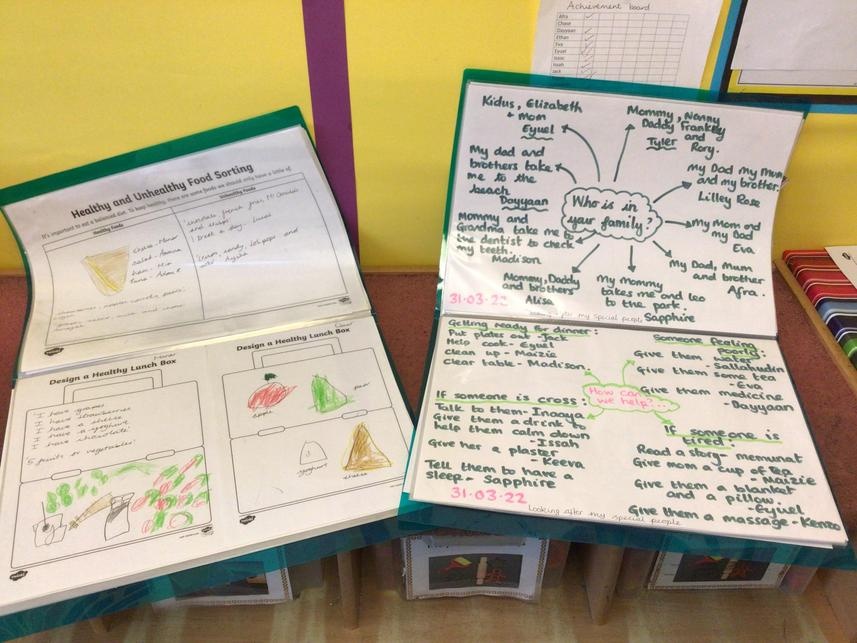 Achievement board
Afra
Chase
Dayyaan
Ethan
Eva
Eyuel
Isaac
Isaiah
Jack
Healthy and Unhealthy Food Sorting
It's important to eat a balanced diet. To keep healthy, there are some foods we should only have a little of.
Healthy Foods
Unhealthy Foods
1 treat a day.
Design a Healthy Lunch Box
I have grapes
I have strawberries
I have a cheese
I have a yoghurt
I have chocolate'
5 fruits or vegetables'
Design a Healthy Lunch Box
apple
pear
yoghurt
cheese
Kidus, Elizabeth
+ mom
Eyuel
Mommy, Nanny
Daddy Frankey
Tyler and
Rory.
My dad and
brothers take
me to the
beach
Dayyaan
My Dad my Mum
and my brother.
Lilley Rose
Who is in
your family?
Mommy and
Grandma take me to
the dentist to check
my teeth.
Madison
My Mom and
my Dad
Eva
My Dad, Mum
and brother
Afra.
Mommy, Daddy
and brothers
Alisa
My mommy
takes me and leo
to the park.
Sapphire
31.03.22
my special people
Getting ready for dinner:
Put plates out - Jack
Help cook - Eyuel
Clean up - Maizie
Clear table - Madison.
Someone feeling
poorly:
Give them water
- Sallahudin
Give them some tea
- Eva
Give them medicine
- Dayyaan
How can
we help?...
If someone is cross:
Talk to them - Inaaya
Give them a drink to
help them calm down
- Issah
Give her a plaster
- Keeva
Tell them to have a
sleep - Sapphire
31.03.22
If someone is
tired:
Read a story - memunat
Give mom a cup of tea
- Maizie
Give them a blanket
and a pillow.
- Eyuel
Give them a massage - Kenzo
Looking after my special people